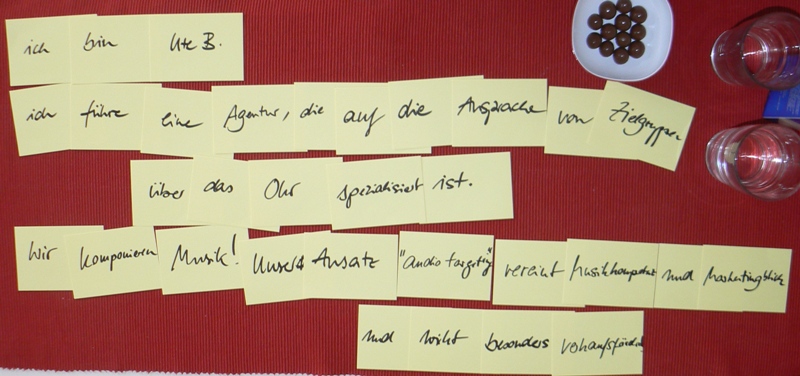 ich bin Ute B.
ich führe eine Agentur, die auf die Ansprache von Zielgruppen
über das Ohr spezialisiert ist.
Wir komponieren Musik! Unser Ansatz "audio targeting" vereint Musikkompetenz und Marketingblick
und wirkt besonders verkaufsfördernd.